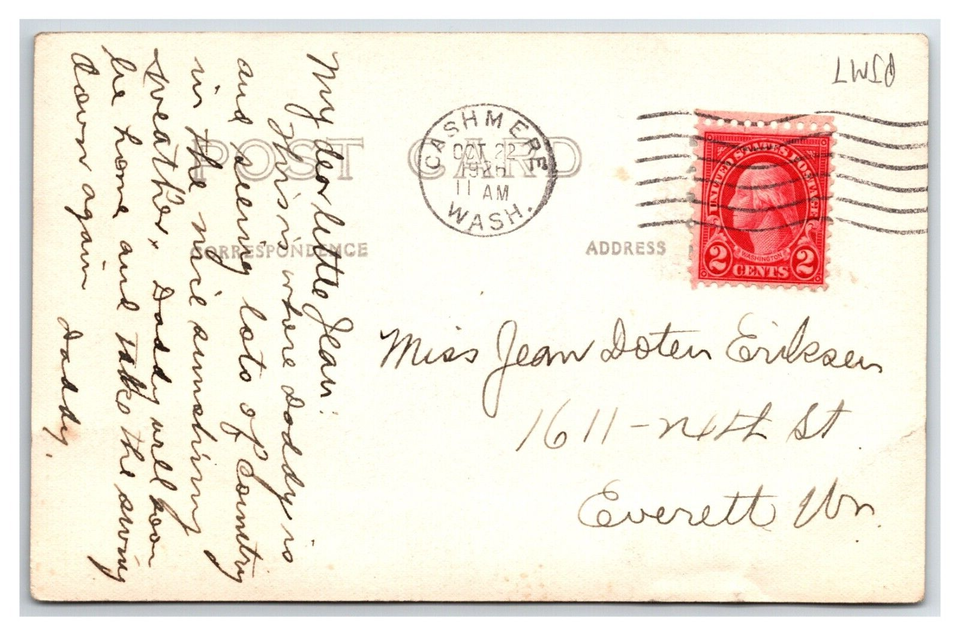 My dear little Jean:
This is where Daddy is
and seeing lots of Country
in the nice sunshiny
weather. Daddy will soon
be home and take the swing
down again
Daddy.
POST CARD
CORRESPONDENCE
ADDRESS
CASHMERE
OCT 22
11 AM
WASH.
UNITED STATES POSTAGE
WASHINGTON
2 CENTS 2
Miss Jean Doten Eriksen
1611 - St.
Everett Wn.